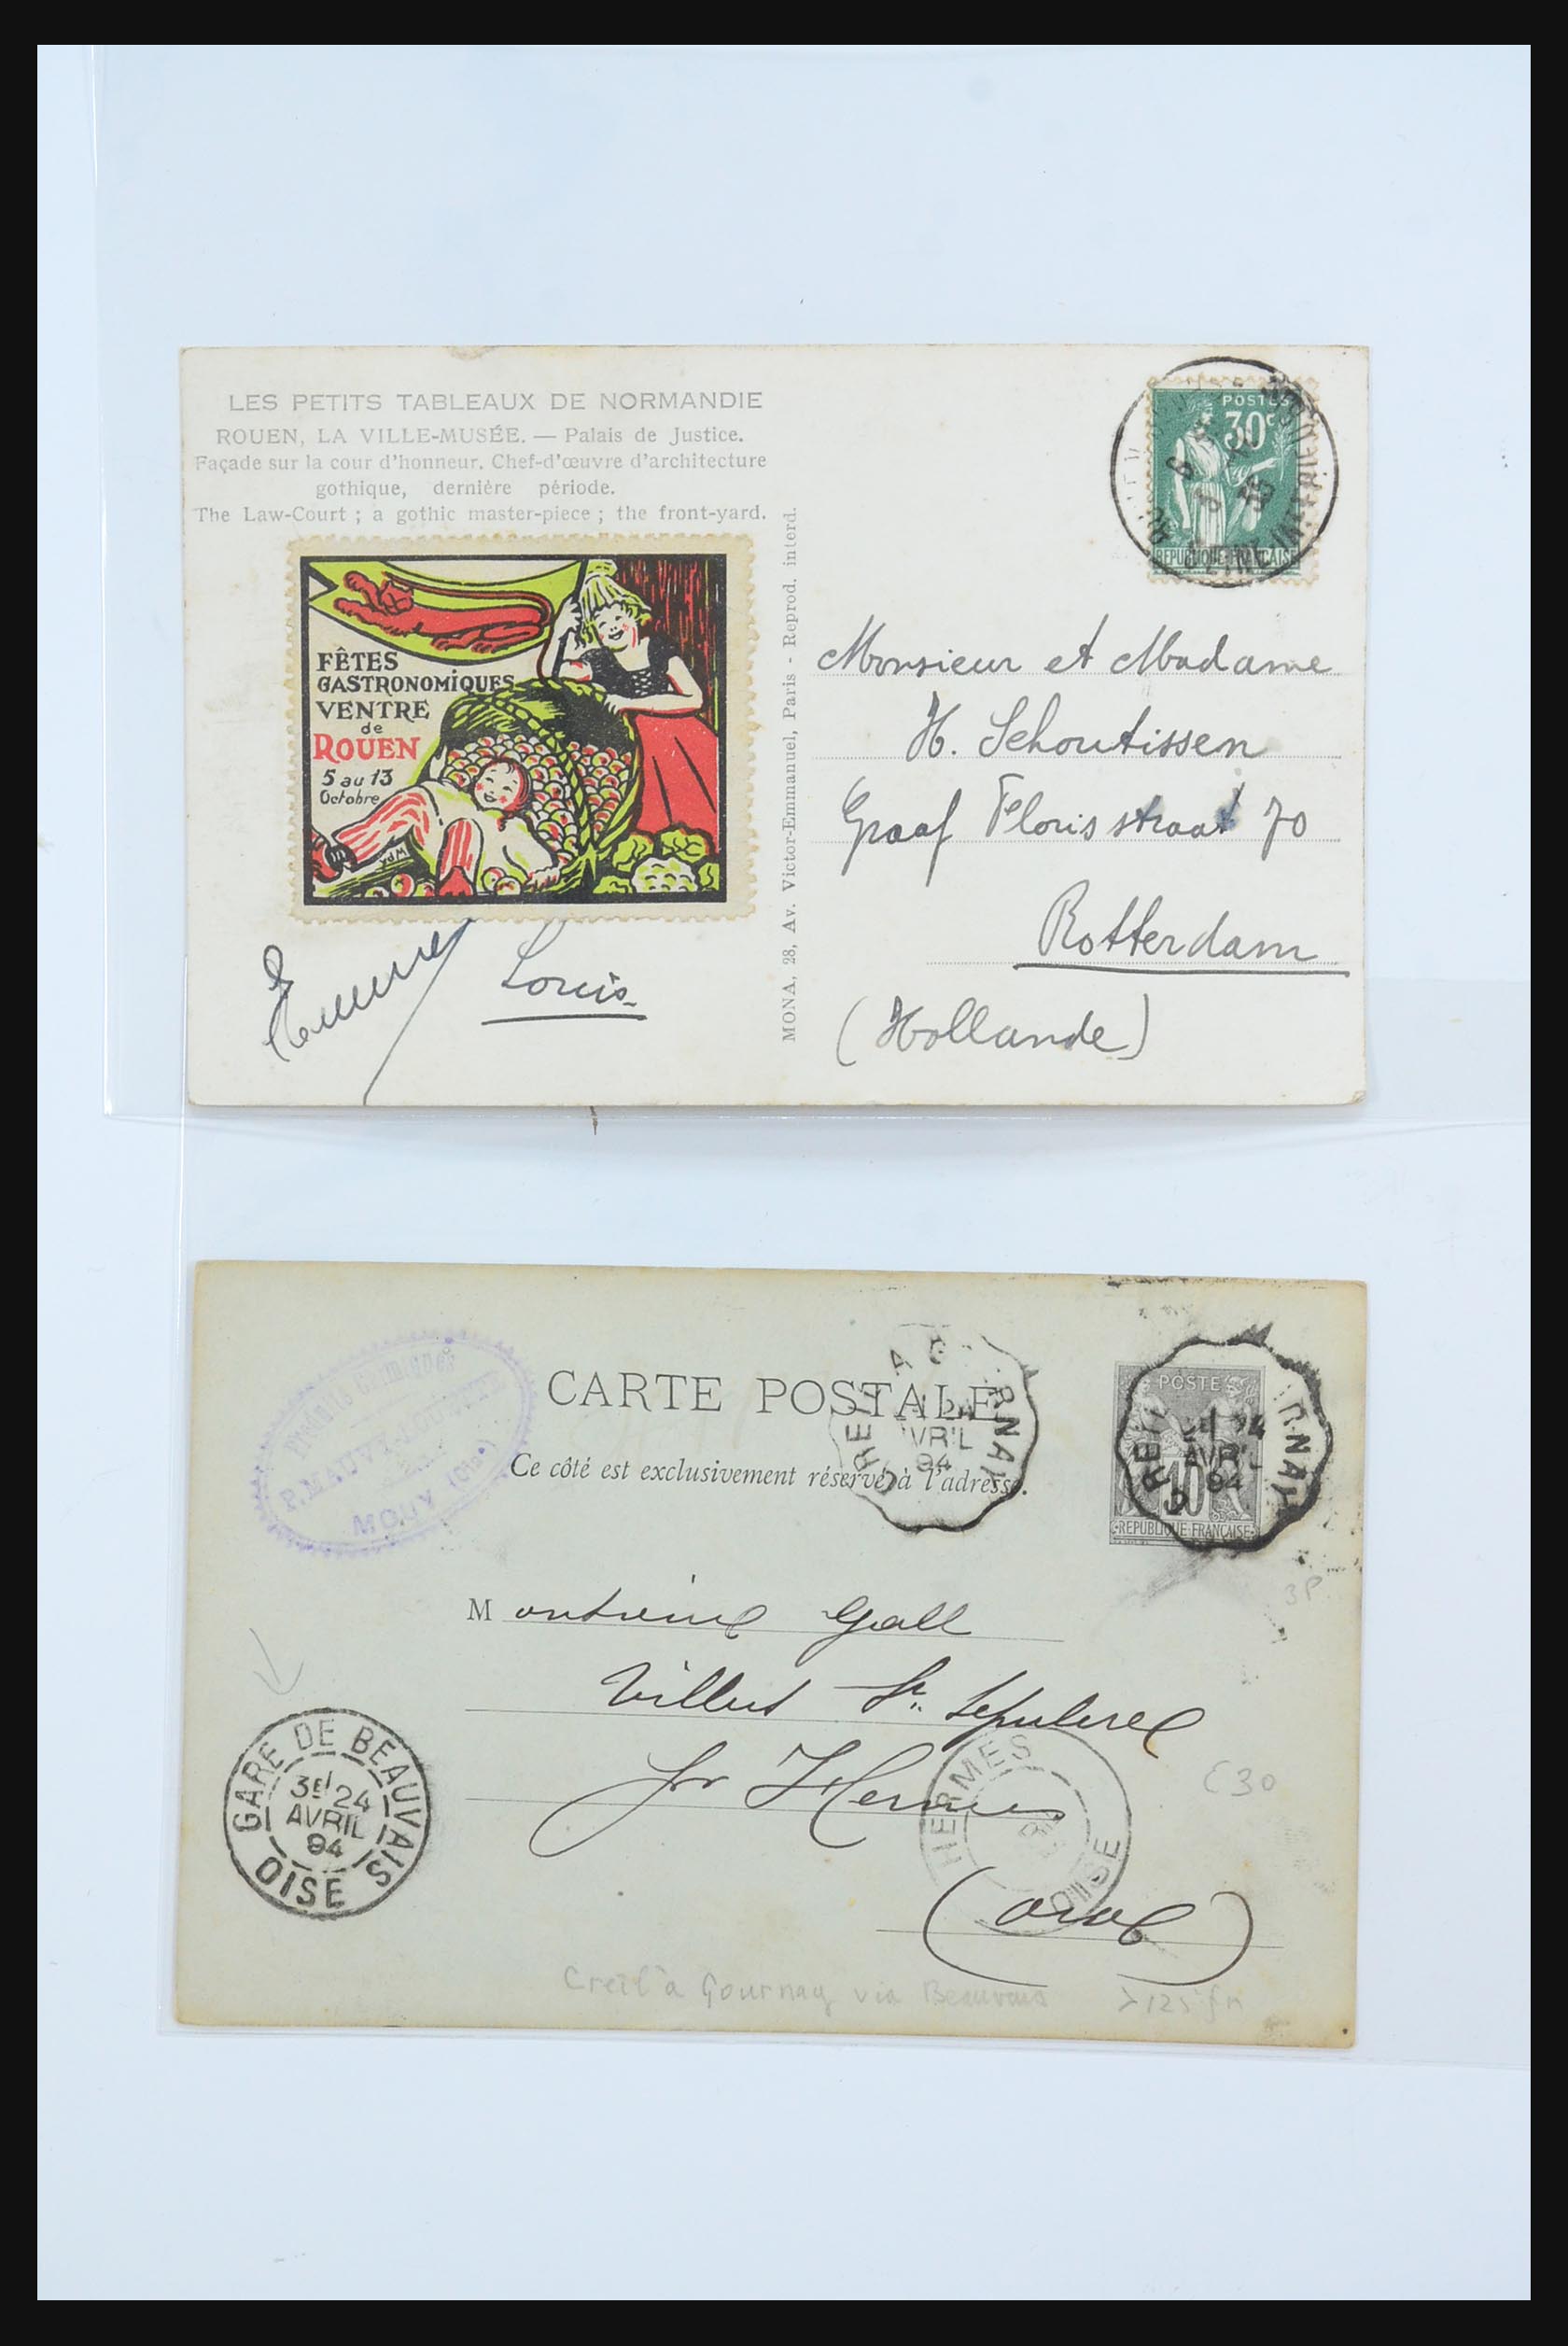 LES PETITS TABLEAUX DE NORMANDIE
ROUEN, LA VILLE-MUSÉE. — Palais de Justice.
Façade sur la cour d'honneur. Chef-d'œuvre d'architecture
gothique, dernière période.
The Law-Court ; a gothic master-piece ; the front-yard.
FÊTES
GASTRONOMIQUES
VENTRE
de
ROUEN
5 au 13
Octobre
Louis
MONA, 28, Av. Victor-Emmanuel, Paris - Reprod. interd.
POSTES
30c
REPUBLIQUE FRANÇAISE
Monsieur et Madame
H. Schoutissen
Graaf Florisstraat 70
Rotterdam
(Hollande)
MOUY (Oise)
CARTE POSTALE
Ce côté est exclusivement réservé à l'adresse.
CREIL A
24
AVRIL
94
POSTE
10
REPUBLIQUE FRANÇAISE
24
AVRIL
94
38
M Gall
Villers St Sepulcre
pr Hermes
(Oise)
GARE DE BEAUVAIS
3E 24
AVRIL
94
OISE
HERMES
OISE
C30
Creil à Gournay via Beauvais